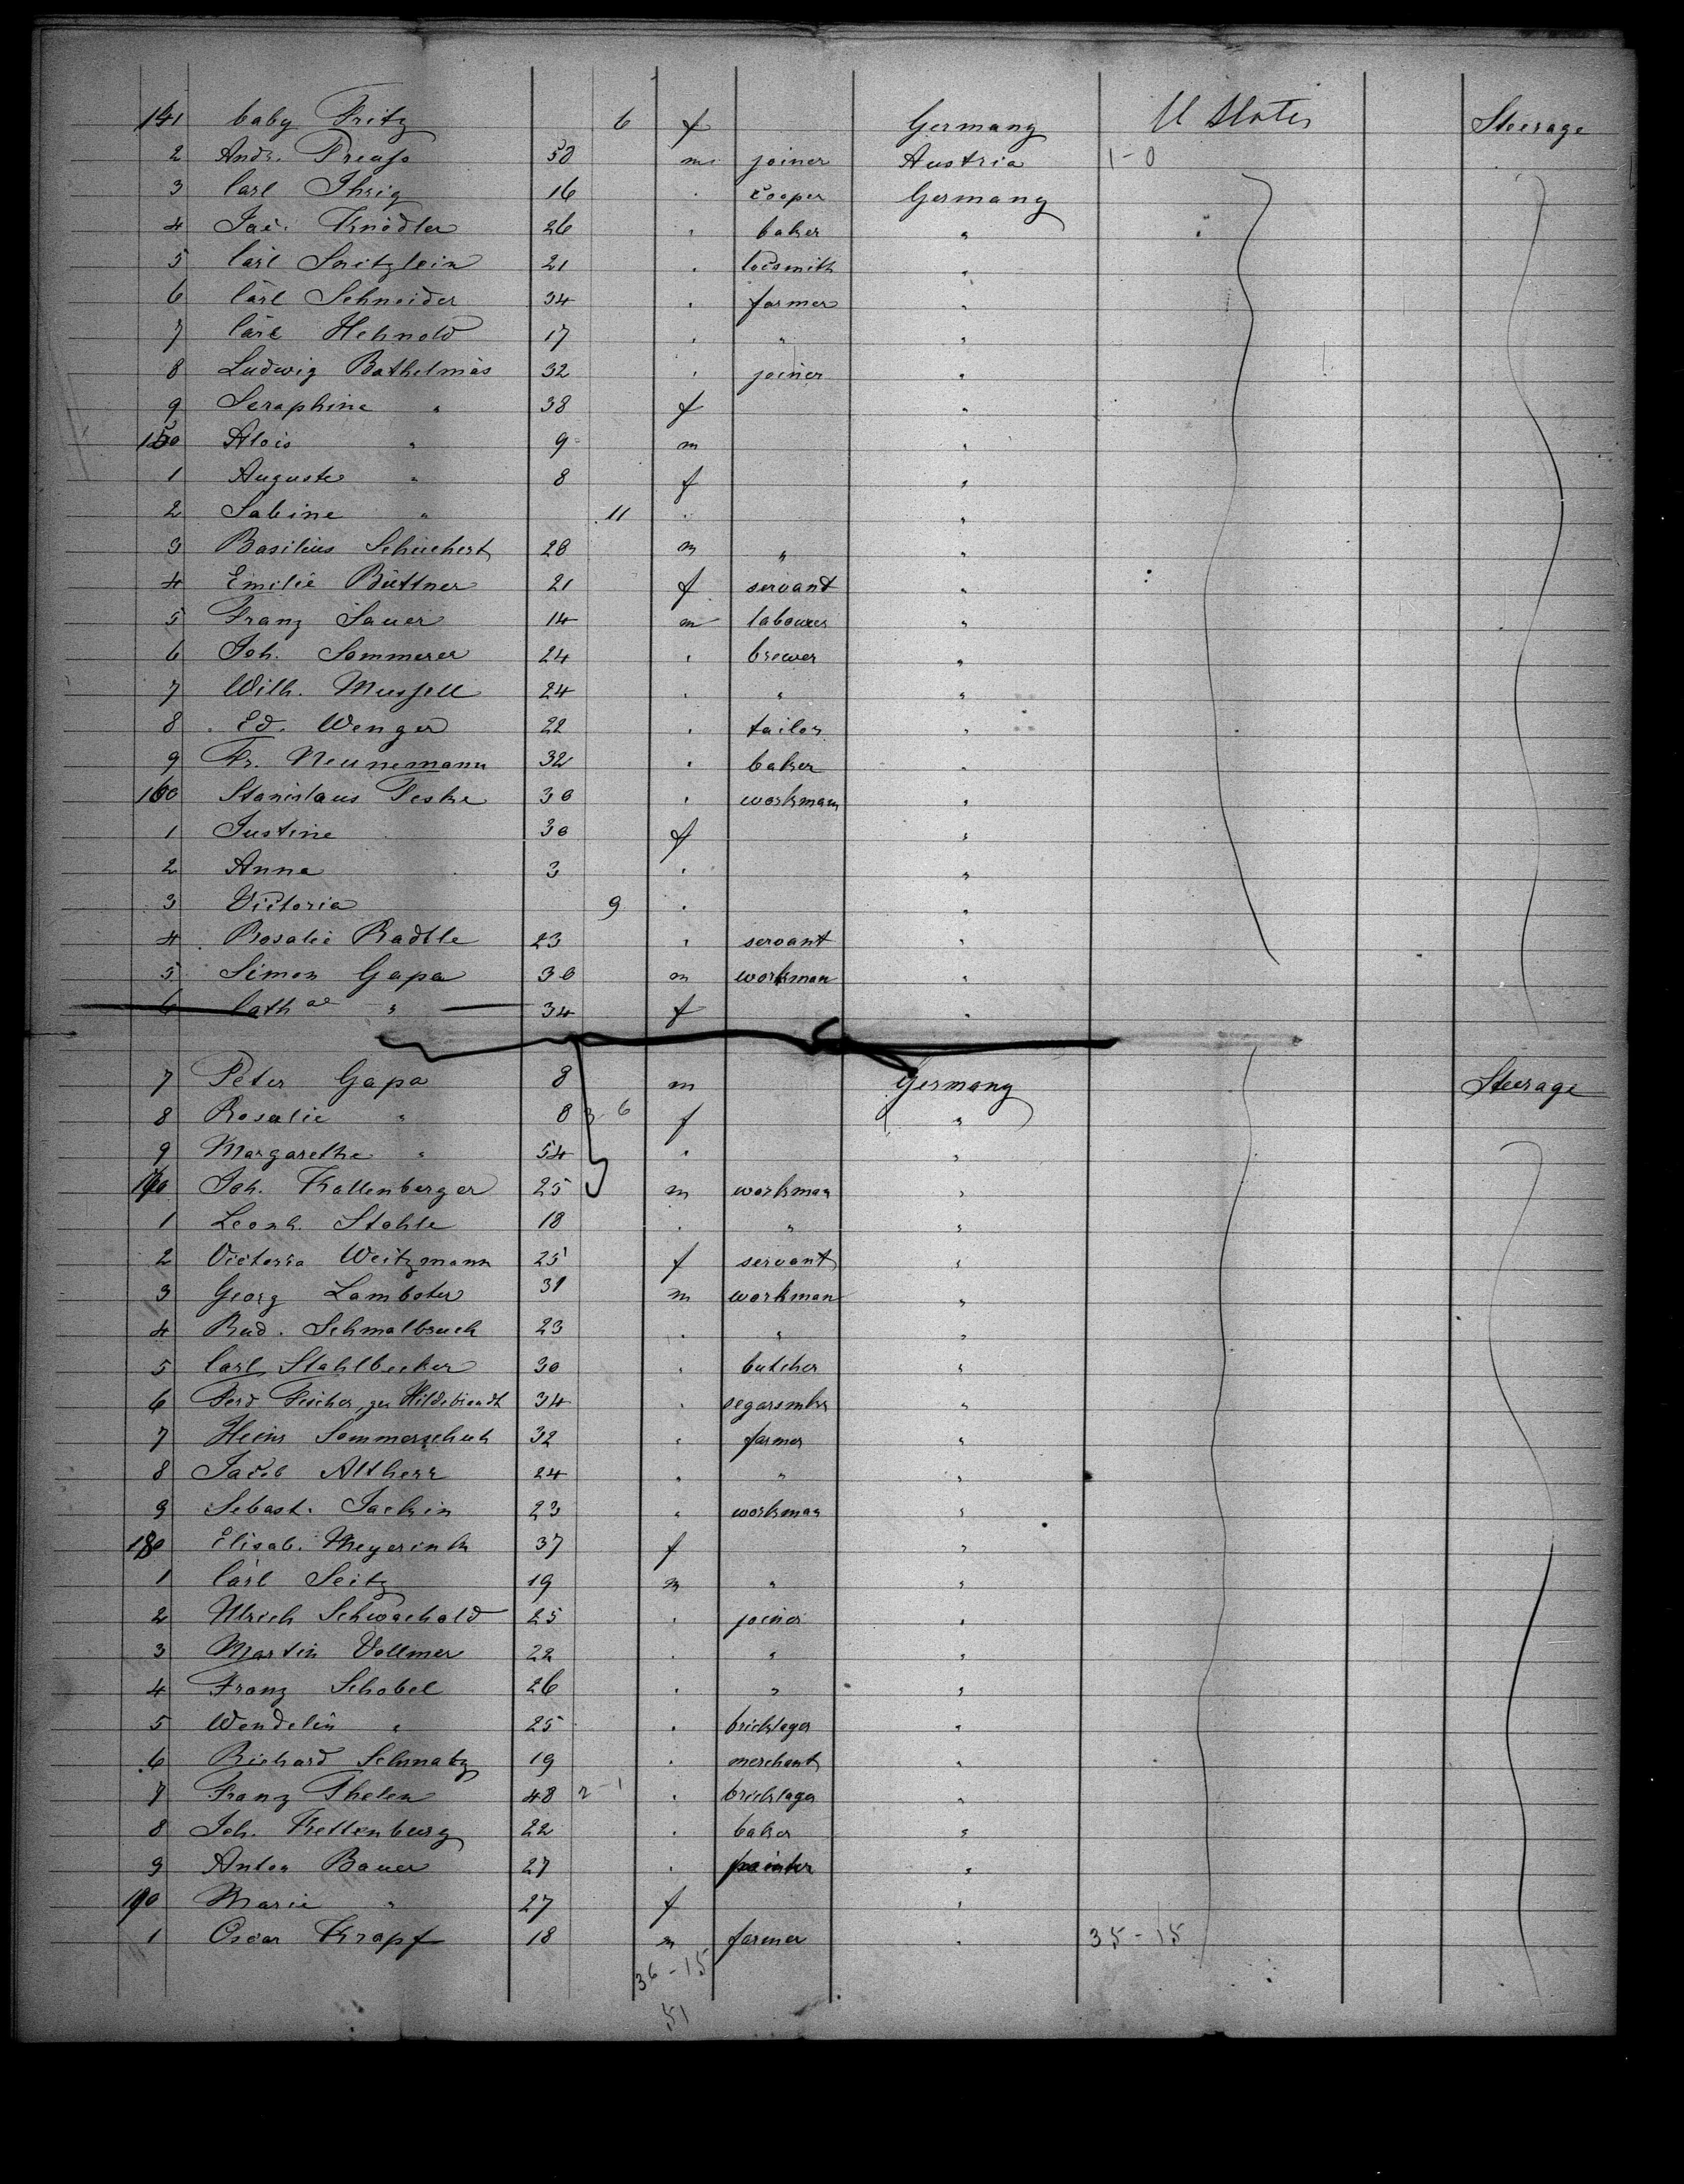 141 baby Fritz 6 f Germany U States Steerage
2 Andr. Preuss 50 m joiner Austria 1-0
3 Carl Ihrig 16 " cooper Germany
4 Jac. Knödler 26 " baker "
5 Carl Snitzlein 21 " locsmith "
6 Carl Schneider 34 " farmer "
7 Carl Hehnold 17 " " "
8 Ludwig Bathelmas 32 " joiner "
9 Seraphine " 38 f "
150 Alois " 9 m "
1 Auguste " 8 f "
2 Sabine " 11 " "
3 Basilius Schuchert 28 m " "
4 Emilie Büttner 21 f servant "
5 Franz Sauer 14 m labourer "
6 Joh. Sommerer 24 " brewer "
7 Wilh. 24 " " "
8 Ed. Wenger 22 " tailor "
9 Fr. Neunemann 32 " baker "
160 Stanislaus Feske 30 " workman "
1 Justine 30 f "
2 Anna 3 " "
3 Victoria 9 " "
4 Rosalie Radtle 23 " servant "
5 Simon Gapa 30 m workman "
6 Cath ae " 34 f "
7 Peter Gapa 8 m Germany Steerage
8 Rosalie " 8 3-6 f "
9 Margarethe " 54 " "
170 Joh. Kallenberger 25 m workman "
1 Leonh. Stohle 18 " " "
2 Victoria Weitzmann 25 f servant "
3 Georg Lamboter 31 m workman "
4 Rud. Schmalbruch 23 " " "
5 Carl Stahlbecker 30 " butcher "
6 Ferd Fischer gen Hildebrandt 34 " segarsmkr "
7 Heinr Sommerschuh 32 " farmer "
8 Jacob Altherr 24 " " "
9 Sebast. Jackin 23 " workman "
180 Elisab. Meyerink 37 f "
1 Carl Seitz 19 m " "
2 Ulrich Schwachold 25 " joiner "
3 Martin Vollmer 22 " " "
4 Franz Schobel 26 " " "
5 Wendelin " 25 " bricklayer "
6 Richard Schmatz 19 " merchant "
7 Franz Thelen 48 2-1 " bricklayer "
8 Joh. Kettenburg 22 " baker "
9 Anton Bauer 27 " painter "
190 Marie " 27 f "
1 Oscar Krapf 18 m farmer " 35-15
36-15
51